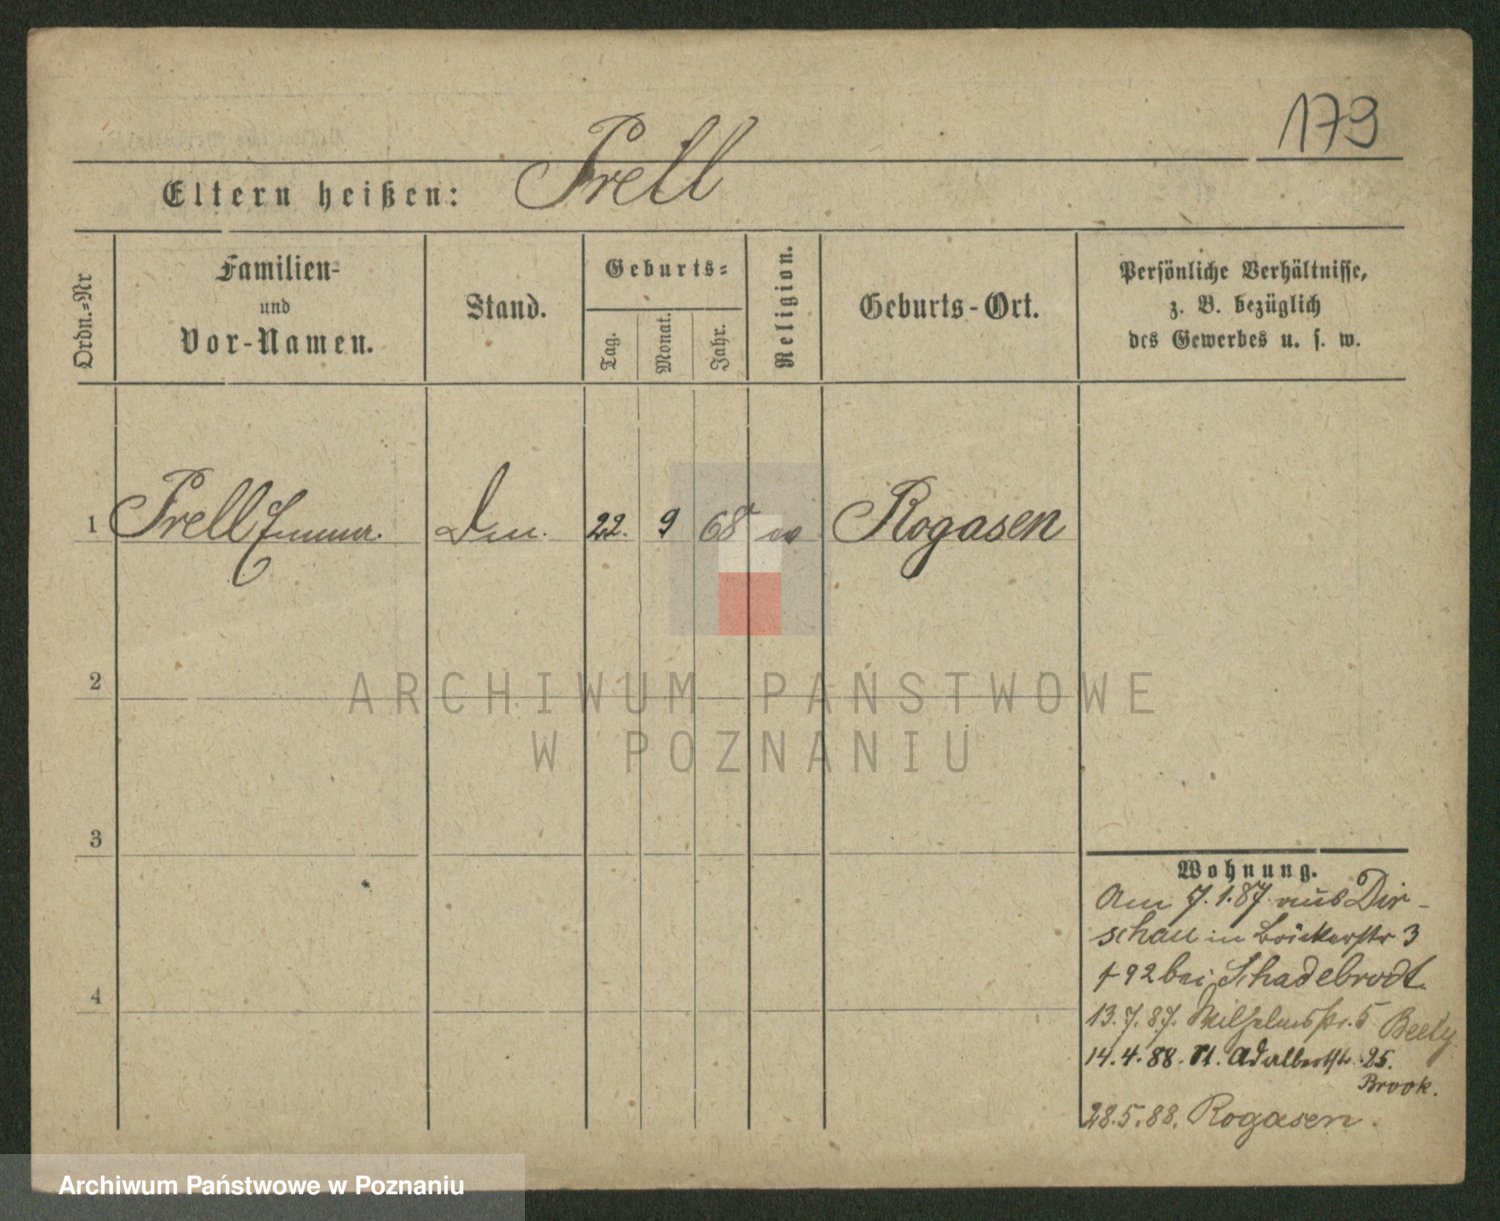 179
Eltern heißen: Prell
Ordn.-Nr
Familien-
und
Vor-Namen.
Stand.
Geburts-
Tag.
Monat.
Jahr.
Religion.
Geburts-Ort.
Persönliche Verhältnisse,
z. B. bezüglich
des Gewerbes u. s. w.
1 Prell Emma. 22. 9 68 Rogasen
2
3
4
ARCHIWUM PAŃSTWOWE
W POZNANIU
Wohnung.
Am 7.1.87. aus Dir-
schau in Bäckerstr 3
bei Schadebrodt.
13.7.87. Wilhelmstr. 5 Beely
14.4.88. St. Adalbertstr. 25.
Brook.
28.5.88. Rogasen.
Archiwum Państwowe w Poznaniu